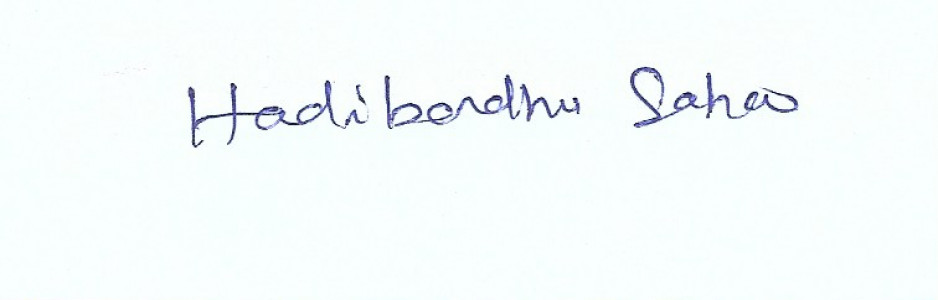 Hadibandhu Sahoo